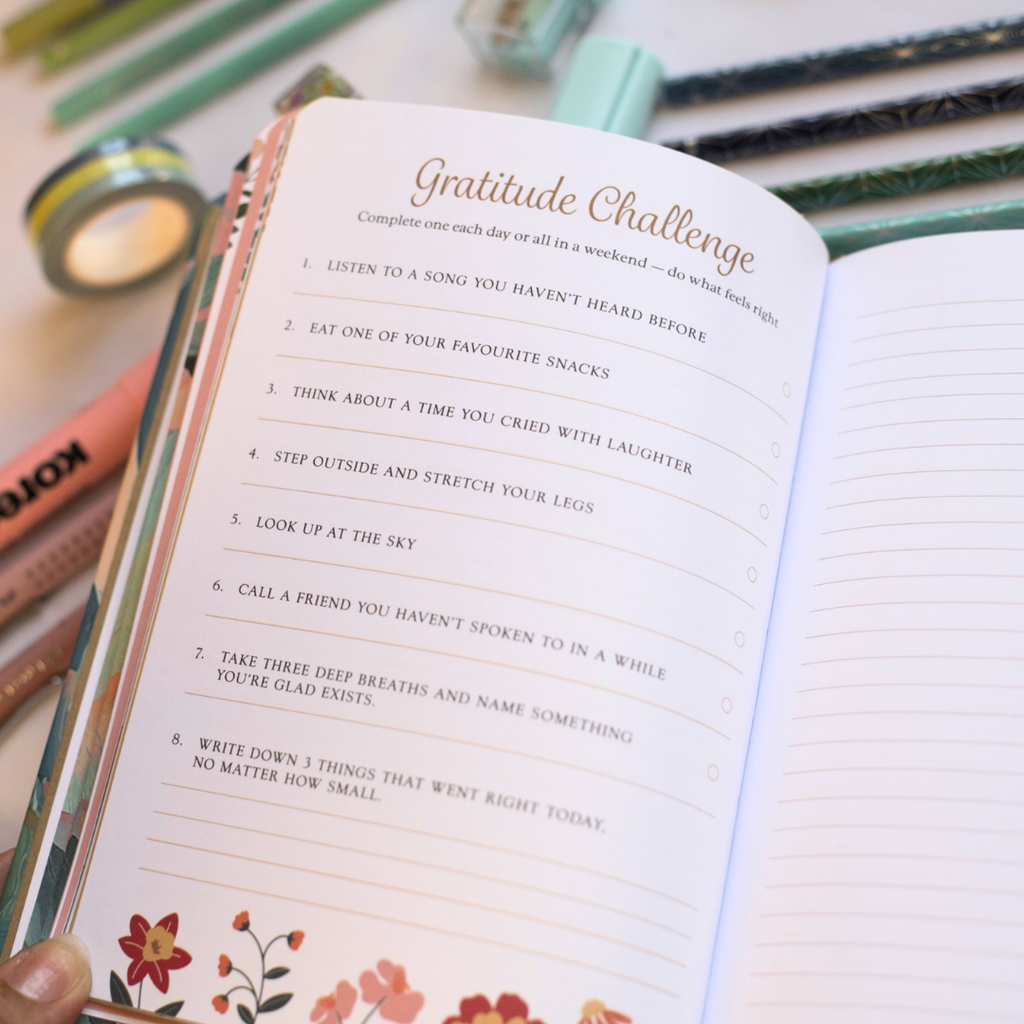 Gratitude Challenge
Complete one each day or all in a weekend — do what feels right
1. LISTEN TO A SONG YOU HAVEN'T HEARD BEFORE
2. EAT ONE OF YOUR FAVOURITE SNACKS
3. THINK ABOUT A TIME YOU CRIED WITH LAUGHTER
4. STEP OUTSIDE AND STRETCH YOUR LEGS
5. LOOK UP AT THE SKY
6. CALL A FRIEND YOU HAVEN'T SPOKEN TO IN A WHILE
7. TAKE THREE DEEP BREATHS AND NAME SOMETHING
YOU'RE GLAD EXISTS.
8. WRITE DOWN 3 THINGS THAT WENT RIGHT TODAY,
NO MATTER HOW SMALL.